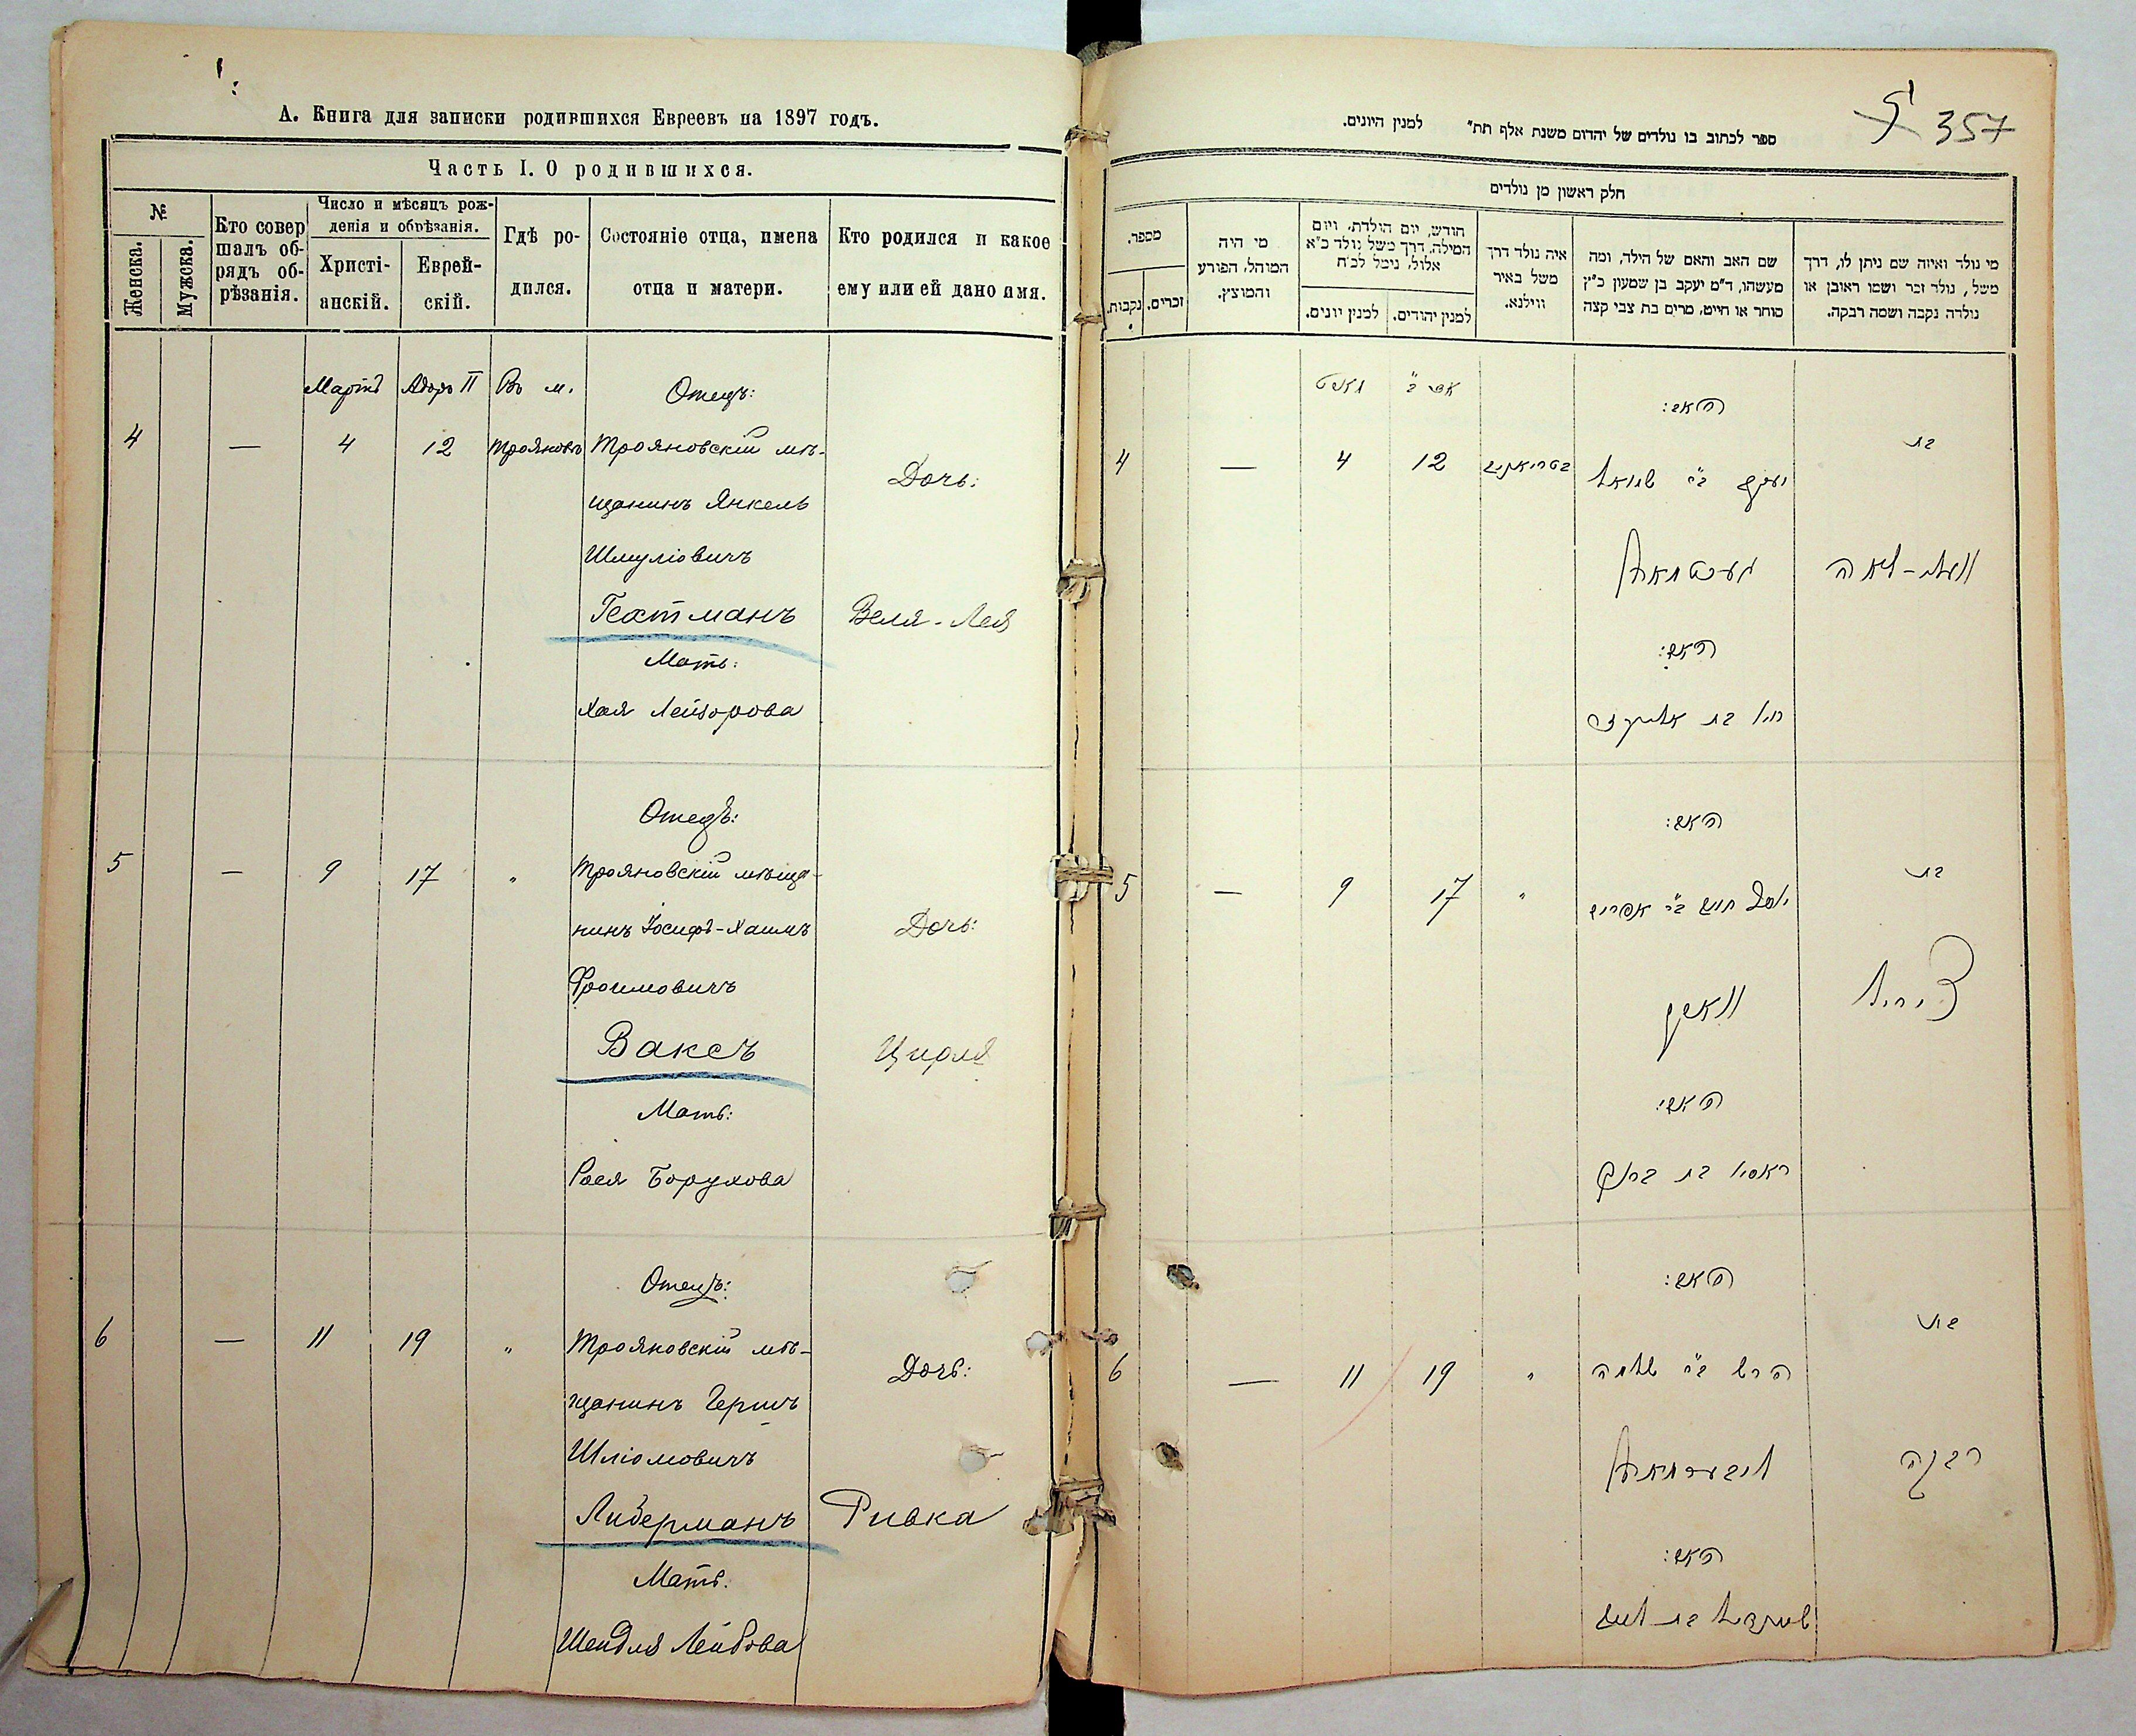 А. Книга для записки родившихся Евреевъ на 1897 годъ.
Часть I. О родившихся.
№
Женска.
Мужска.
Кто совер
шалъ об-
рядъ об-
рѣзанія.
Число и мѣсяцъ рож-
денія и обрѣзанія.
Христі-
анскій.
Еврей-
скій.
Гдѣ ро-
дился.
Состояніе отца, имена
отца и матери.
Кто родился и какое
ему или ей дано имя.
Мартъ
Адоръ II
Въ м.
Отецъ:
4
—
4
12
Трояновъ
Трояновскій мѣ-
щанинъ Янкель
Шмуліовичъ
Гехтманъ
Мать:
Хая Лейзорова
Дочь:
Веля-Лея
Отецъ:
5
—
9
17
"
Трояновскій мѣща-
нинъ Іосифъ-Хаимъ
Фроимовичъ
Ваксъ
Мать:
Рося Борухова
Дочь:
Цирля
Отецъ:
6
—
11
19
"
Трояновскій мѣ-
щанинъ Гершъ
Шліомовичъ
Либерманъ
Мать:
Шендля Лейбова
Дочь:
Ривка
357
ספר לכתוב בו נולדים של יהדום משנת אלף תת״ למנין היונים.
חלק ראשון מן נולדים
מי נולד ואיזה שם ניתן לו, דרך
משל, נולד זכר ושמו ראובן או
נולדה נקבה ושמה רבקה.
שם האב והאם של הילד, ומה
מעשהו, ד״מ יעקב בן שמעון כ״ץ
סוחר או חייט, מרים בת צבי קצה
איה נולד דרך
משל באיר
ווילנא.
חודש, יום הולדת, ויום
המילה, דרך משל נולד כ״א
אלול, נימל לכ״ח
למנין יהודים.
למנין יונים.
מי היה
המוהל, הפורע
והמוצץ.
מספר.
זכרים.
נקבות.
האב:
בת
4
—
4
12
יעקב ב״ר שמואל
געכטמאן
וועליא-לאה
האם:
חי׳ בת אליעזר
האב:
בת
5
—
9
17
"
יוסף חיים ב״ר אפרים
וואקס
צירל
האם:
ראסי׳ בת ברוך
האב:
בת
6
—
11
19
"
הרש ב״ר שלמה
ליבערמאן
רבקה
האם:
שיינדל בת לייב